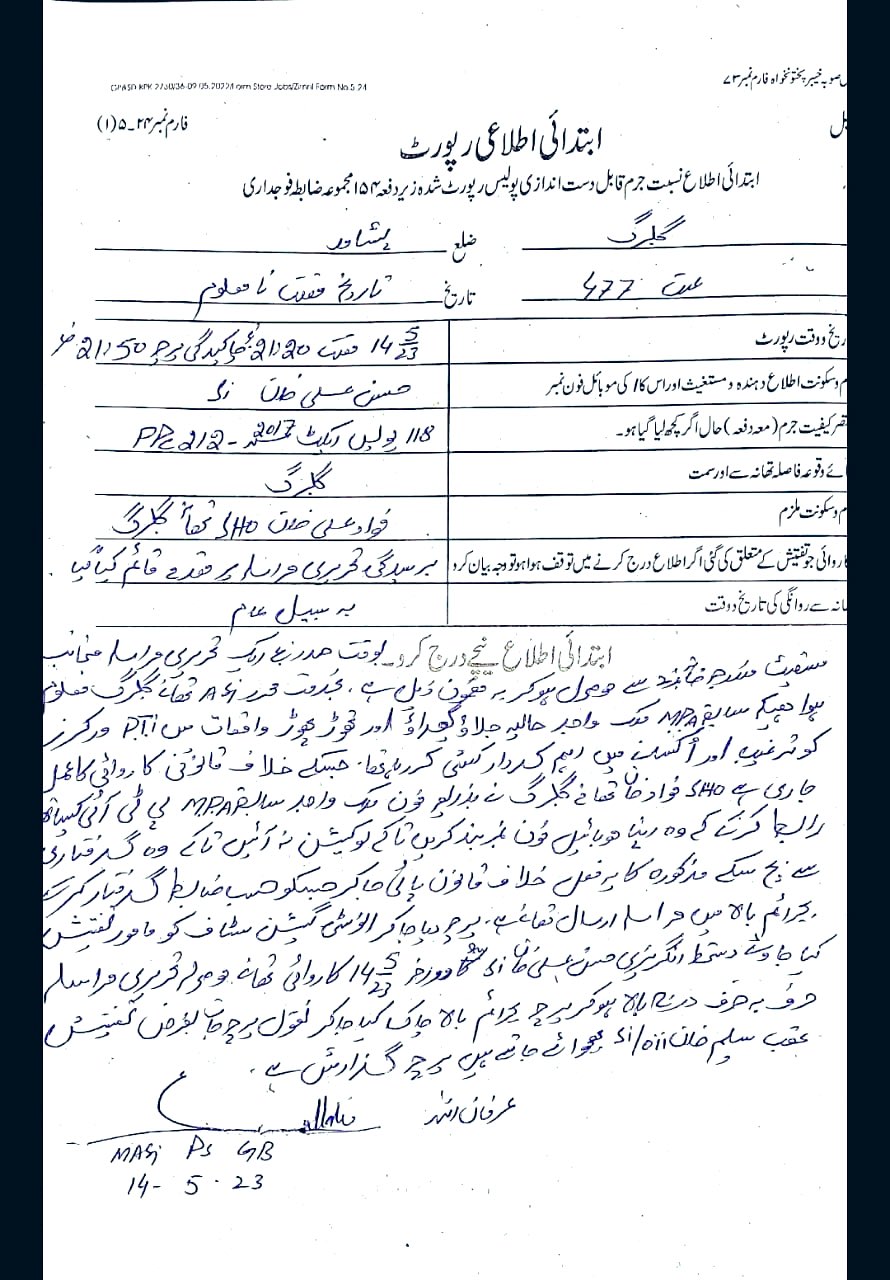 GP&SD KPK 2730/36-09.05.2022/Form Store Jobs/Zimni Form No.5.24
صوبہ خیبر پختونخواہ فارم نمبر ۷۳
فارم نمبر ۲۴۔۵ (۱)
ابتدائی اطلاعی رپورٹ
ابتدائی اطلاع نسبت جرم قابل دست اندازی پولیس رپورٹ شدہ زیر دفعہ ۱۵۴ مجموعہ ضابطہ فوجداری
گلبرگ ضلع پشاور
علت 477 تاریخ تاریخ وقت نا معلوم
وقت رپورٹ 14 5/23 وقت 21:20 چاکیدگی پرچہ 21:50
و سکونت اطلاع دہندہ و مستغیث اور اس کا / کی موبائل فون نمبر حسن علی خان Si
کیفیت جرم (معہ دفعہ) حال اگر کچھ لیا گیا ہو۔ 118 پولیس ایکٹ 2017 - PPC 212
وقوعہ فاصلہ تھانہ سے اور سمت گلبرگ
و سکونت ملزم فواد علی خان SHO تھانہ گلبرگ
جو تفتیش کے متعلق کی گئی اگر اطلاع درج کرنے میں توقف ہوا ہو تو وجہ بیان کرو برسیدگی تحریری مراسلہ پر مقدمہ قائم کیا گیا
سے روانگی کی تاریخ و وقت بہ سبیل عام
ابتدائی اطلاع نیچے درج کرو۔ بوقت صدر ایک تحریری مراسلہ منجانب
مستغیث مندرجہ سے موصول ہو کر بہ مضمون ذیل ہے۔ بخدمت محرر ASI تھانہ گلبرگ معلوم
ہوا ہے کہ سابقہ MPA ملک واجد حالیہ جلاؤ گھیراؤ اور توڑ پھوڑ واقعات میں PTI ورکرز
کو ترغیب اور اکسانے میں اہم کردار کر رہا تھا۔ جسکے خلاف قانونی کاروائی کا عمل
جاری ہے SHO فواد خان تھانہ گلبرگ نے بذریعہ فون ملک واجد سابقہ MPA پی ٹی آئی کیساتھ
رابطہ کرکے کے وہ اپنا موبائیل فون نمبر بند کریں تاکے لوکیشن نہ آئیں تاکے وہ گرفتاری
سے بچ سکے مذکورہ کا یہ فعل خلاف قانون پا کر جسکو حسب ضابطہ گرفتار کرکے
بجرائم بالا میں مراسلہ ارسال تھانہ ہے۔ پرچہ دیا جا کر انوسٹی گیشن سٹاف کو مامور تفتیش
کیا جاوے دستخط انگریزی حسن علی خان SI مورخہ 14 5/23 کاروائی تھانہ وصولہ تحریری مراسلہ
حرف بہ حرف درج بالا ہو کر پرچہ بجرائم بالا چاک کیا جا کر نقول پرچہ جات بغرض تفتیش
عقب سلیم خان Si/oii بھجوائے جاتے ہیں پرچہ گذارش ہے۔
عرفان اللہ
MASi PS GB
14- 5 . 23